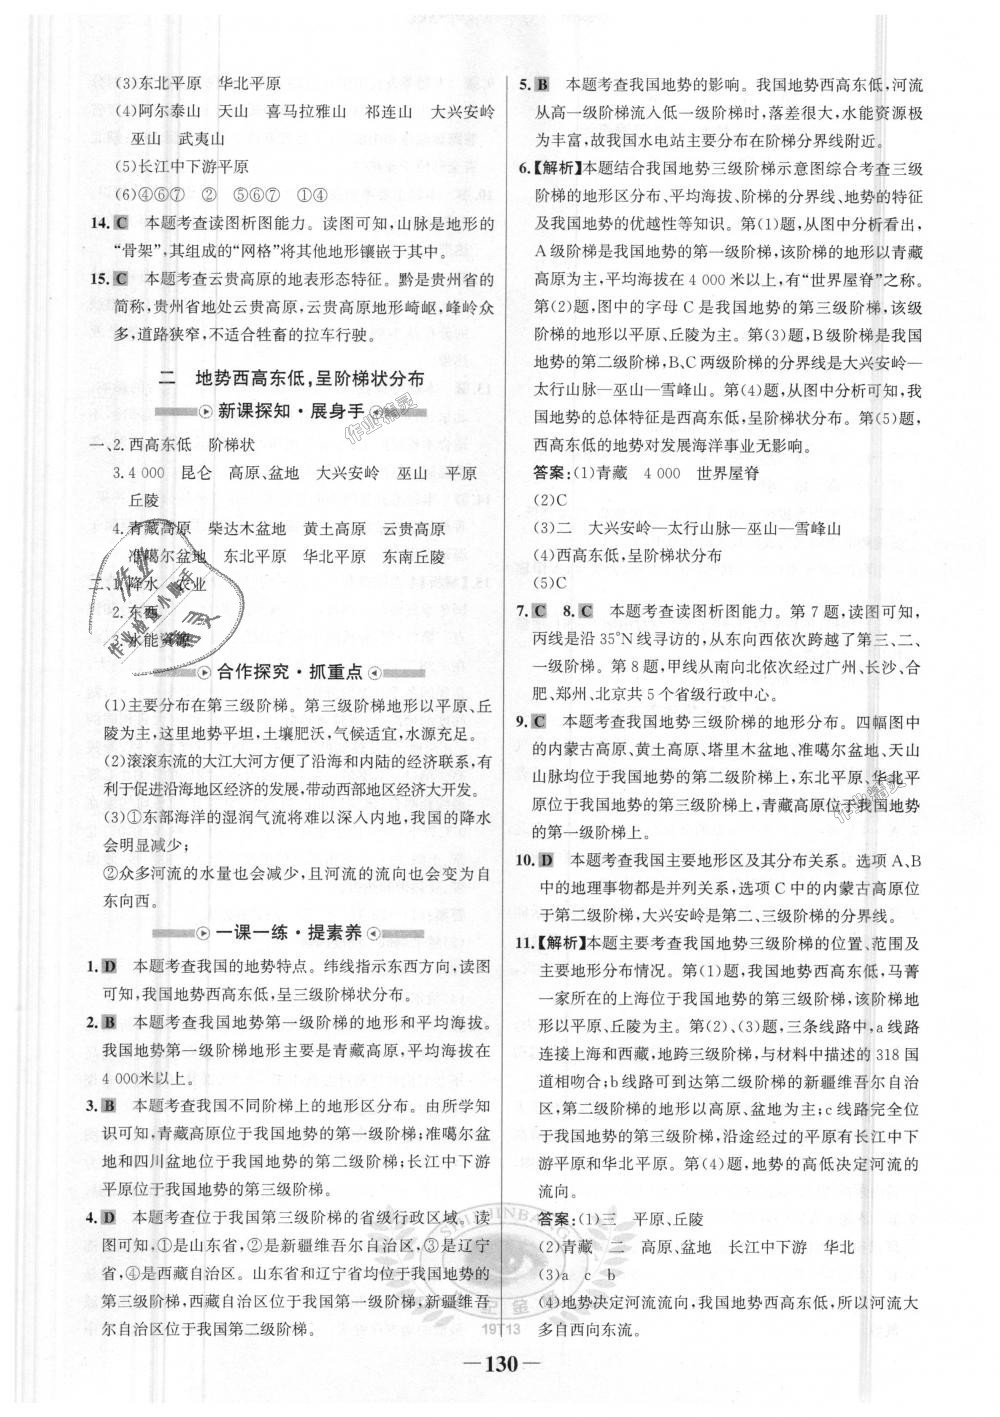 (3)东北平原　华北平原
(4)阿尔泰山　天山　喜马拉雅山　祁连山　大兴安岭
巫山　武夷山
(5)长江中下游平原
(6)④⑥⑦　②　⑤⑥⑦　①④
14. C　本题考查读图析图能力。读图可知,山脉是地形的
“骨架”,其组成的“网格”将其他地形镶嵌于其中。
15. C　本题考查云贵高原的地表形态特征。黔是贵州省的
简称,贵州省地处云贵高原,云贵高原地形崎岖,峰岭众
多,道路狭窄,不适合牲畜的拉车行驶。
二　地势西高东低,呈阶梯状分布
新课探知·展身手
一、2. 西高东低　阶梯状
3. 4 000　昆仑　高原、盆地　大兴安岭　巫山　平原
丘陵
4. 青藏高原　柴达木盆地　黄土高原　云贵高原
准噶尔盆地　东北平原　华北平原　东南丘陵
二、1. 降水　农业
2. 东西
3. 水能资源
合作探究·抓重点
(1)主要分布在第三级阶梯。第三级阶梯地形以平原、丘
陵为主,这里地势平坦,土壤肥沃,气候适宜,水源充足。
(2)滚滚东流的大江大河方便了沿海和内陆的经济联系,有
利于促进沿海地区经济的发展,带动西部地区经济大开发。
(3)①东部海洋的湿润气流将难以深入内地,我国的降水
会明显减少;
②众多河流的水量也会减少,且河流的流向也会变为自
东向西。
一课一练·提素养
1. D　本题考查我国的地势特点。纬线指示东西方向,读图
可知,我国地势西高东低,呈三级阶梯状分布。
2. B　本题考查我国地势第一级阶梯的地形和平均海拔。
我国地势第一级阶梯地形主要是青藏高原,平均海拔在
4 000米以上。
3. B　本题考查我国不同阶梯上的地形区分布。由所学知
识可知,青藏高原位于我国地势的第一级阶梯;准噶尔盆
地和四川盆地位于我国地势的第二级阶梯;长江中下游
平原位于我国地势的第三级阶梯。
4. D　本题考查位于我国第三级阶梯的省级行政区域。读
图可知,①是山东省,②是新疆维吾尔自治区,③是辽宁
省,④是西藏自治区。山东省和辽宁省均位于我国地势的
第三级阶梯,西藏自治区位于我国第一级阶梯,新疆维吾
尔自治区位于我国第二级阶梯。
5. B　本题考查我国地势的影响。我国地势西高东低,河流
从高一级阶梯流入低一级阶梯时,落差很大,水能资源极
为丰富,故我国水电站主要分布在阶梯分界线附近。
6.【解析】本题结合我国地势三级阶梯示意图综合考查三级
阶梯的地形区分布、平均海拔、阶梯的分界线、地势的特征
及我国地势的优越性等知识。第(1)题,从图中分析看出,
A级阶梯是我国地势的第一级阶梯,该阶梯的地形以青藏
高原为主,平均海拔在4 000米以上,有“世界屋脊”之称。
第(2)题,图中的字母C是我国地势的第三级阶梯,该级
阶梯的地形以平原、丘陵为主。第(3)题,B级阶梯是我国
地势的第二级阶梯,B、C两级阶梯的分界线是大兴安岭—
太行山脉—巫山—雪峰山。第(4)题,从图中分析可知,我
国地势的总体特征是西高东低,呈阶梯状分布。第(5)题,
西高东低的地势对发展海洋事业无影响。
答案:(1)青藏　4 000　世界屋脊
(2)C
(3)二　大兴安岭—太行山脉—巫山—雪峰山
(4)西高东低,呈阶梯状分布
(5)C
7. C　8. C　本题考查读图析图能力。第7题,读图可知,
丙线是沿35°N线寻访的,从东向西依次跨越了第三、二、
一级阶梯。第8题,甲线从南向北依次经过广州、长沙、合
肥、郑州、北京共5个省级行政中心。
9. C　本题考查我国地势三级阶梯的地形分布。四幅图中
的内蒙古高原、黄土高原、塔里木盆地、准噶尔盆地、天山
山脉均位于我国地势的第二级阶梯上,东北平原、华北平
原位于我国地势的第三级阶梯上,青藏高原位于我国地势
的第一级阶梯上。
10. D　本题考查我国主要地形区及其分布关系。选项A、B
中的地理事物都是并列关系,选项C中的内蒙古高原位
于第二级阶梯,大兴安岭是第二、三级阶梯的分界线。
11.【解析】本题主要考查我国地势三级阶梯的位置、范围及
主要地形分布情况。第(1)题,我国地势西高东低,马菁
一家所在的上海位于我国地势的第三级阶梯,该阶梯地
形以平原、丘陵为主。第(2)、(3)题,三条线路中,a线路
连接上海和西藏,地跨三级阶梯,与材料中描述的318国
道相吻合;b线路可到达第二级阶梯的新疆维吾尔自治
区,第二级阶梯的地形以高原、盆地为主;c线路完全位
于我国地势的第三级阶梯,沿途经过的平原有长江中下
游平原和华北平原。第(4)题,地势的高低决定河流的
流向。
答案:(1)三　平原、丘陵
(2)青藏　二　高原、盆地　长江中下游　华北
(3)a　c　b
(4)地势决定河流流向,我国地势西高东低,所以河流大
多自西向东流。
19T13
—130—
作业精灵
作业精灵
作业检查小助手